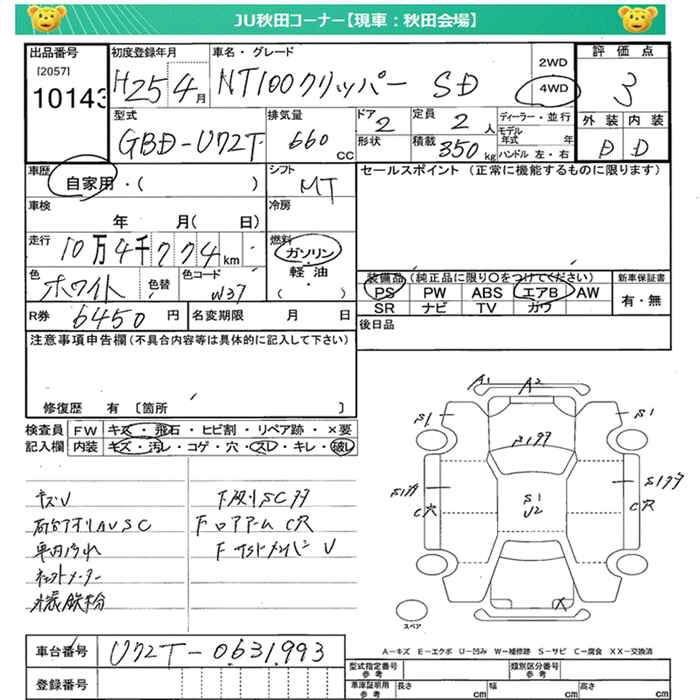 JU秋田コーナー【現車：秋田会場】
出品番号 初度登録年月 車名・グレード 評価点
[2057]
10143 H25 4月 NT100クリッパー SD 2WD 4WD 3
型式 排気量 ドア 定員 ディーラー・並行 外装 内装
GBD-U72T 660 CC 2 2人 モデル年式 年
形状 積載 350kg ハンドル 左・右 D D
車歴 シフト セールスポイント (正常に機能するものに限ります)
自家用・( ) MT
車検 冷房
年 月( 日)
走行 燃料
10万4千774km ガソリン
色 色替 色コード 軽油
ホワイト W37 (・)
装備品(純正品に限り〇をつけてください) 新車保証書
PS PW ABS エアB AW 有・無
SR ナビ TV ガワ
R券 6450円 名変期限 月 日 後日品
注意事項申告欄(不具合内容等は具体的に記入して下さい)
修復歴 有 〔箇所 〕
検査員 FW キズ・飛石・ヒビ割・リペア跡・×要
記入欄 内装 キズ・汚レ・コゲ・穴・スレ・キレ・破レ
A1 A2
S1 S1
S1
S1
U2
C穴 C穴
X
キズU
下廻りSC
荷台アオリAUSC
フロアアームC穴
車内汚れ
FサイドメンバーU
チェックメーター
鉄粉
スペア
A－キズ E－エクボ U－凹み W－補修跡 S－サビ C－腐食 XX－交換済
車台番号 U72T-0631993
型式指定番号 類別区分番号
参考 参考
登録番号 車庫証明用 長さ cm 幅 cm 高さ cm
参考